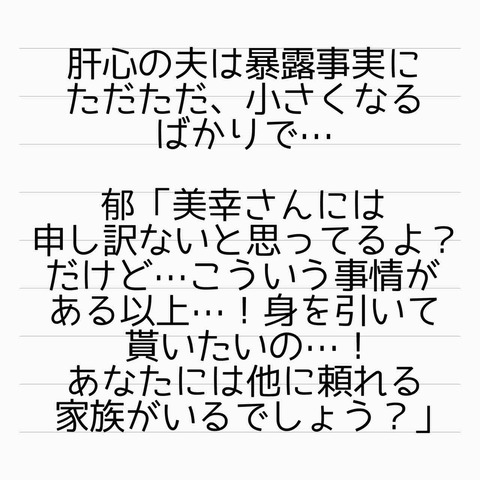 肝心の夫は暴露事実に
ただただ、小さくなる
ばかりで…
郁「美幸さんには
申し訳ないと思ってるよ?
だけど…こういう事情が
ある以上…!身を引いて
貰いたいの…!
あなたには他に頼れる
家族がいるでしょう?」